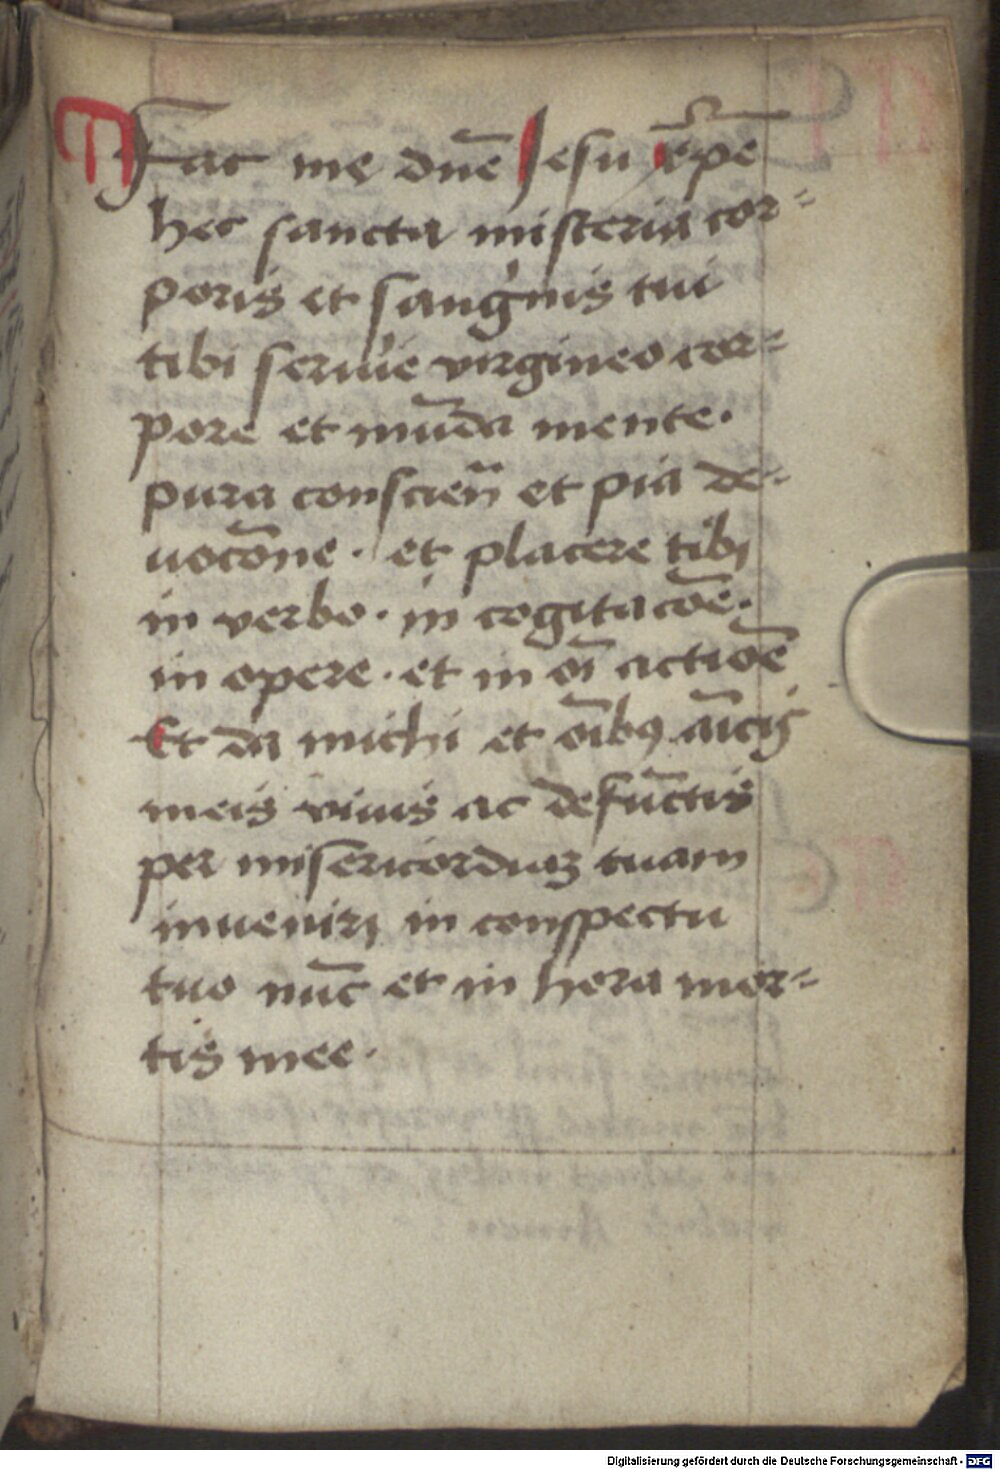 Fac me dn̄e Jesu xp̄e
hec sancta misteria cor=
poris et sangͥnis tui
tibi seruie virgineo cor=
pore et mūda mente.
pura conscien̄ et pia de=
uocōne. et placere tibi
in verbo. in cogitacōe.
in opere. et in oī actiōe
Et da michi et oībꝫ amīcis
meis viuis ac defūctis
per misericordiaꝫ tuam
inueniri in conspectu
tuo nūc et in hora mor=
tis mee.
Digitalisierung gefördert durch die Deutsche Forschungsgemeinschaft - DFG